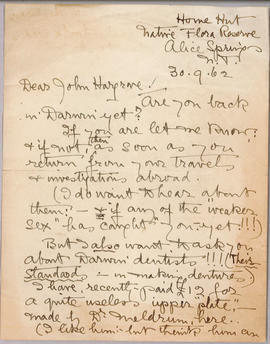 Home Hut
Native Flora Reserve
Alice Springs
N.T.
30.9.62
Dear John Hargrove!
Are you back
in Darwin yet?
If you are let me know;
& if not, then as soon as you
return from your travels
& investigations abroad.
(I do want to hear about
them:- & if any of the "weaker
sex" has caught you yet!!!)
But I also want to ask you
about Darwin dentists!!!! (Their
Standards - in making dentures)
I have recently paid £12 for
a quite useless "upper plate",-
made by Dr Meldrum, here.
(I like him: but think him an